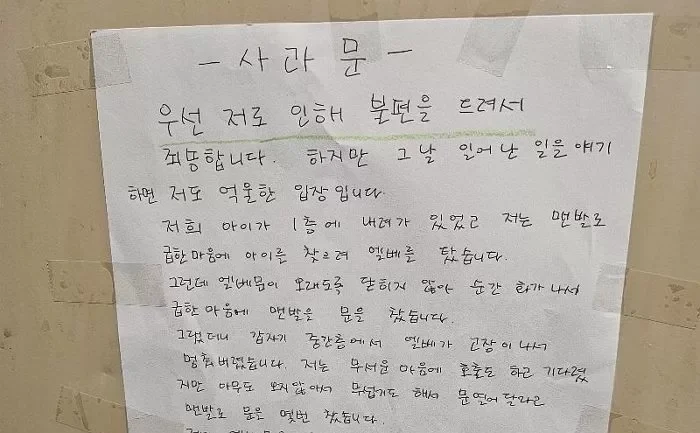 - 사 과 문 -
우선 저로 인해 불편을 드려서
죄송합니다. 하지만 그날 일어난 일을 얘기
하면 저도 억울한 입장입니다.
저희 아이가 1층에 내려가 있었고 저는 맨발로
급한마음에 아이를 찾으려 엘베를 탔습니다.
그런데 엘베문이 오래도록 닫히지 않아 순간 화가나서
급한마음에 맨발을 문을 찼습니다.
그랬더니 갑자기 중간층에서 엘베가 고장이나서
멈춰버렸습니다. 저는 무서운마음에 호출도 하곤 기다렸
지만 아무도 오지않아서 무섭기도 해서 문열어달라고
맨발로 문을 몇번 찼습니다.